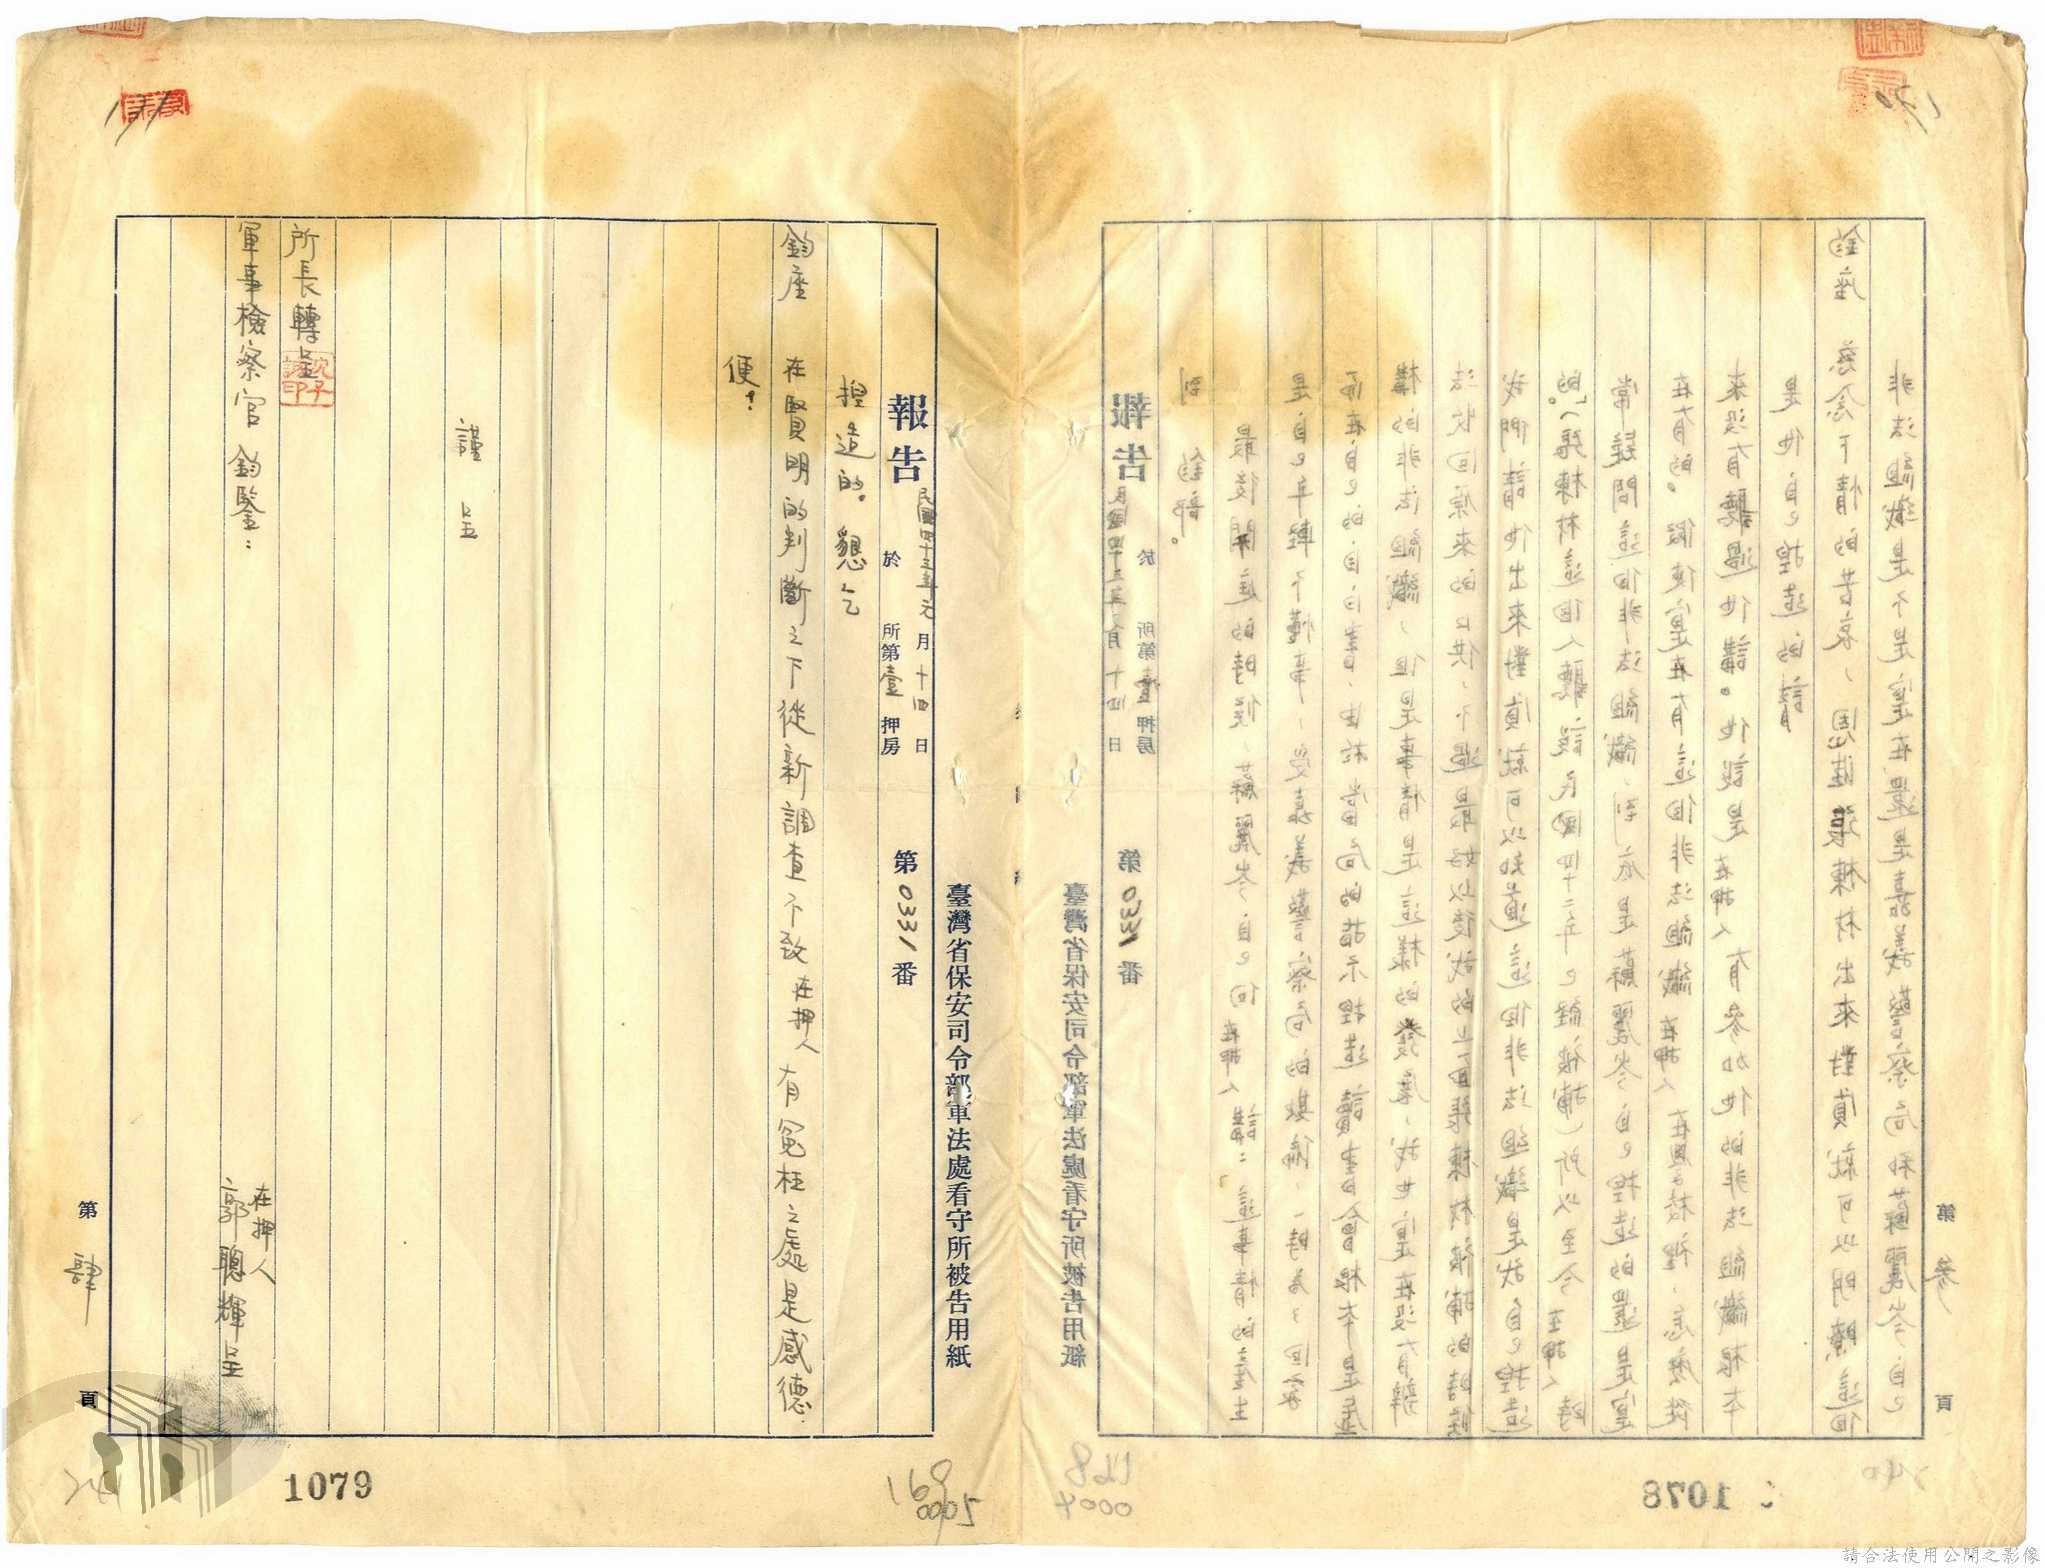 臺灣省保安司令部軍法處看守所被告用紙
報告 於 所第壹押房 第0331番
民國四十三年元月十四日
到 鈞部。
最後開庭的時候，蘇麗岑自己向在押人講：「這事情的產生
是自己年輕不懂事，受嘉義警察局的欺騙，一時為了回家
而在自己的自白書，由於當局的指示捏造讀書會根本是虛
構的非法組織，但是事情是這樣的發展，我也實在沒有辦
法收回原來的口供，不過最好以後說的上面張棟材被捕的時候
我們請他出來對質就可以知道這個非法組織是我自己捏造
的。」（張棟材這個人聽說民國四十二年已經被捕）所以至今在押人時
常疑問這個非法組織，到底是蘇麗岑自己捏造的還是實
在有的。假使實在有這個非法組織在押人在學校裡，怎麼從
來沒有聽過他講。他說是在押人有參加他的非法組織根本
是他自己捏造的請
鈞座 慈念下情的苦衷，恩准張棟材出來對質就可以明瞭這個
非法組織是不是實在還是嘉義警察局和蘇麗岑自己
第 參 頁
1078
168
0004
臺灣省保安司令部軍法處看守所被告用紙
報告 於 所第壹押房 第0331番
民國四十三年元月十四日
捏造的。懇乞
鈞座 在賢明的判斷之下從新調查不致在押人有冤枉之處是感德.
便！
謹 呈
所長轉呈
軍事檢察官 鈞鑒：
在押人
郭聰輝呈
第 肆 頁
1079
169
0005
請合法使用公開之影像